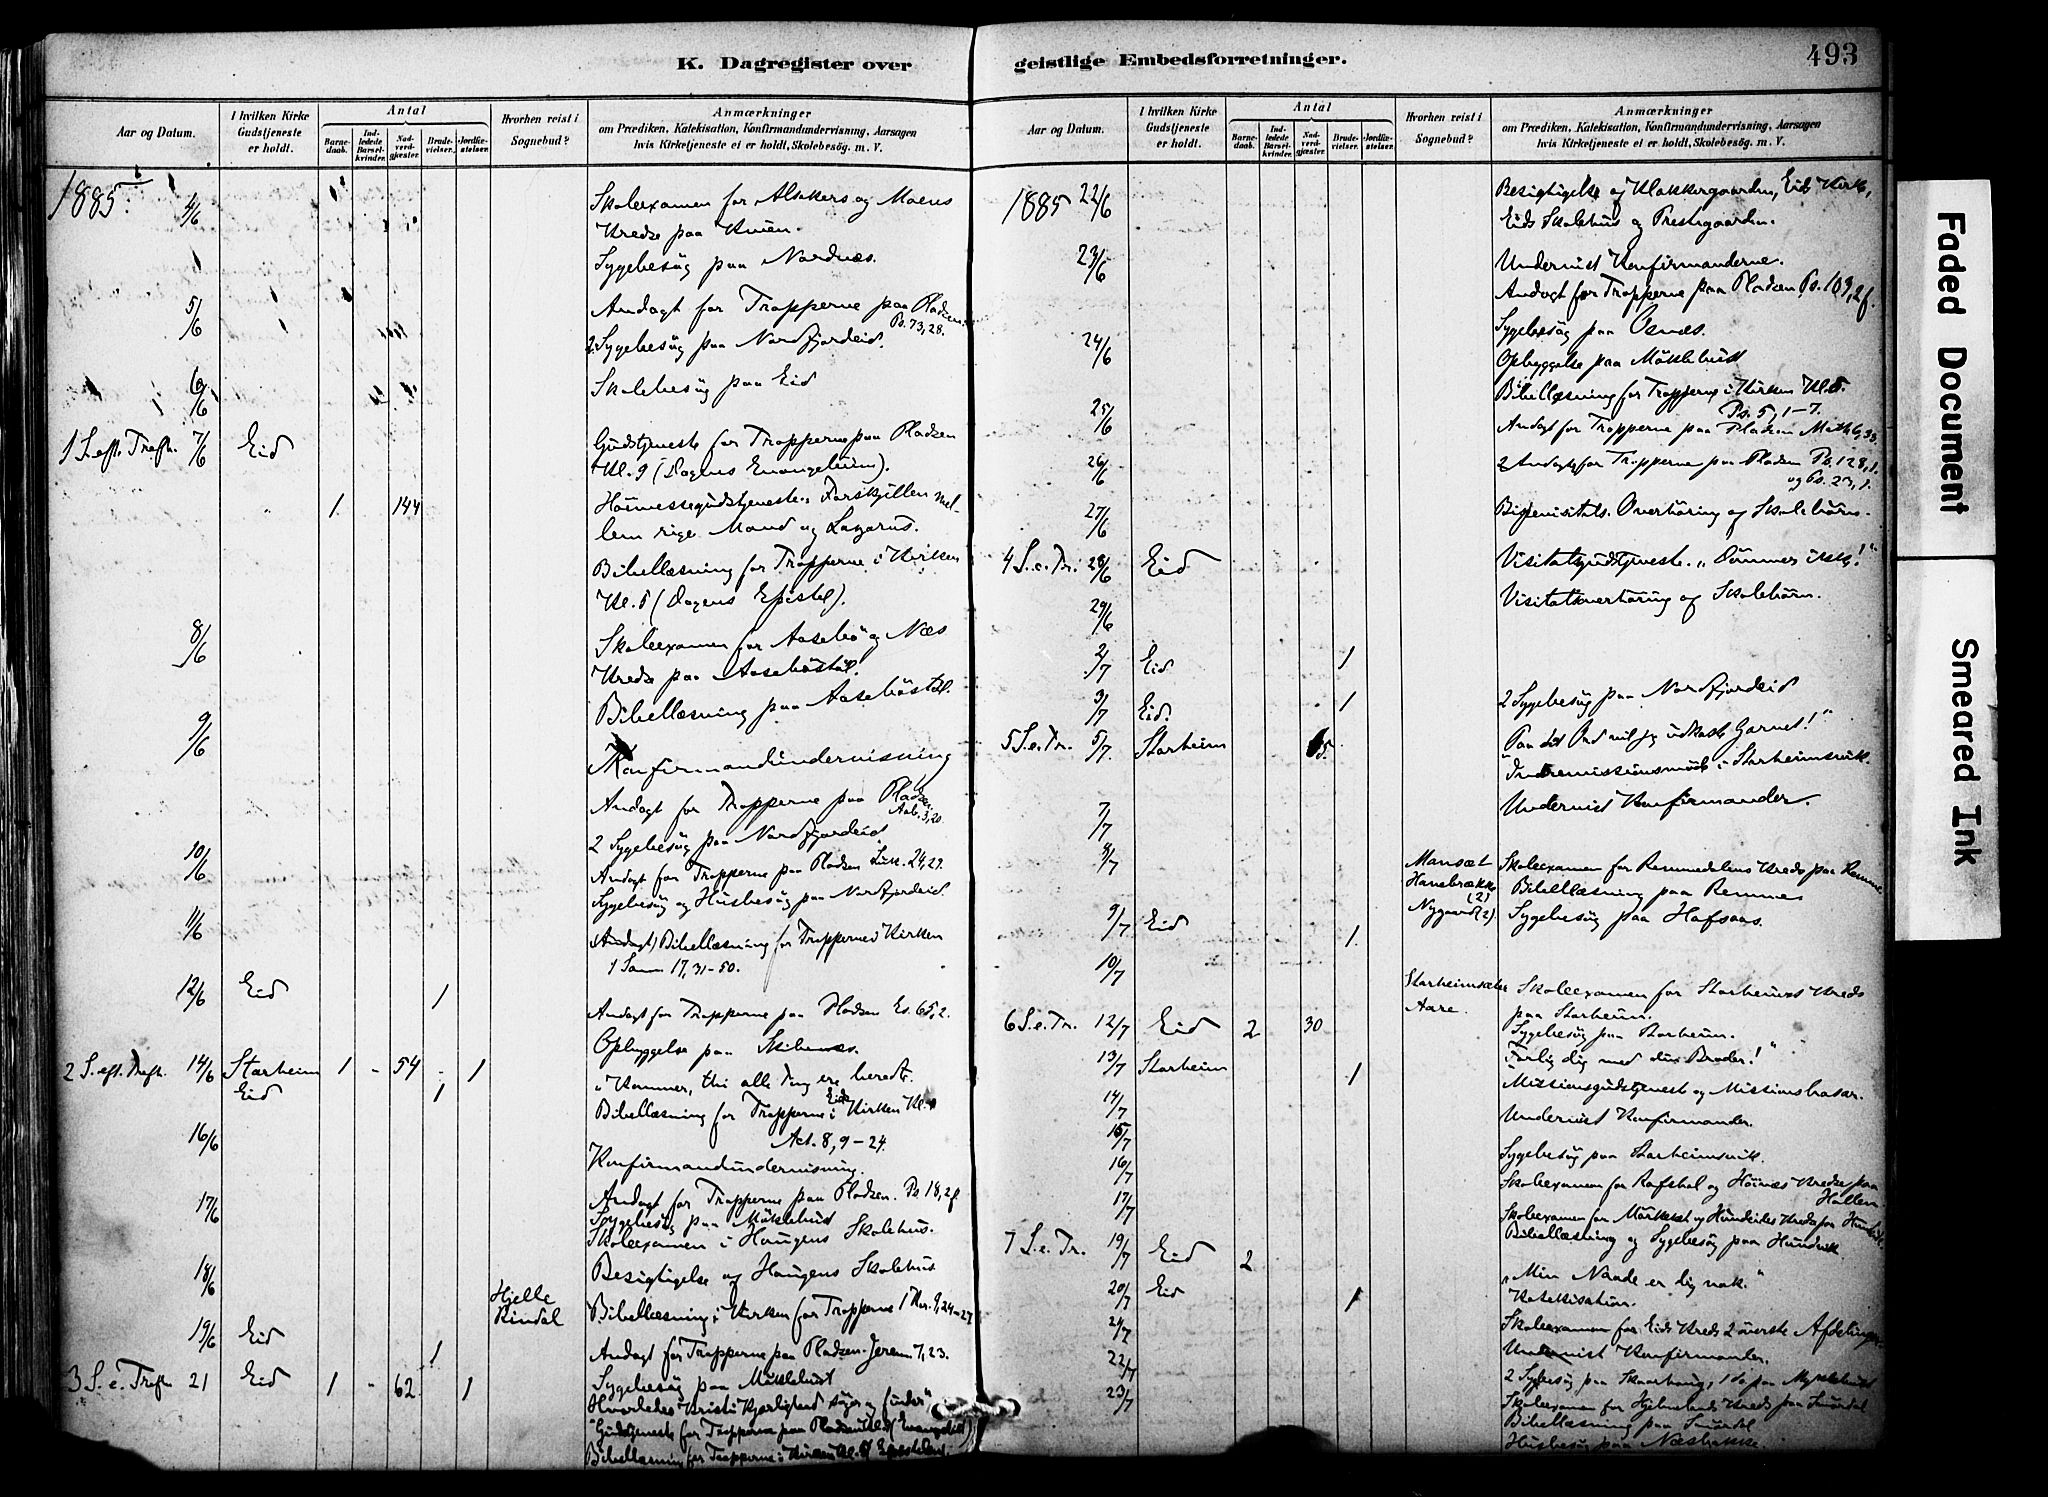 K. Dagregister over
geistlige Embedsforretninger.
493
Aar og Datum.
I hvilken Kirke Gudstjeneste er holdt.
Antal
Barnedaab.
Indledede Barselkvinder.
Nadverdgjæster.
Brudevielser.
Jordfæstelser.
Hvorhen reist i Sognebud?
Anmærkninger
om Prædiken, Katekisation, Konfirmandundervisning, Aarsagen
hvis Kirketjeneste ei er holdt, Skolebesøg. m. V.
1885. 4/6 Skoleexamen for Alsakers og Moens
Kreds paa
Sygebesøg paa Nordnæs.
5/6 Andagt for Tropperne paa Pladsen.
Ps. 73,28.
2 Sygebesøg paa Nordfjordeid.
6/6 Skolebesøg paa Eid
1 S. eft. Trefh. 7/6 Eid Gudstjeneste for Tropperne paa Pladsen
Kl. 9 (Dagens Evangelium).
1. 144 Høimessegudstjeneste. Forskjellen mel-
lem rige Mand og Lazarus.
Bibellæsning for Tropperne i Kirken
Kl. 5 (Dagens Epistel).
8/6 Skoleexamen for Aasebø og Næs
Kreds paa Aasebøstøl.
Bibellæsning paa Aasebøstøl.
9/6 Konfirmandundervisning
Andagt for Tropperne paa Pladsen
Aab. 3,20.
2 Sygebesøg paa Nordfjordeid
10/6 Andagt for Tropperne paa Pladsen Luk. 24,29.
Sygebesøg og Husbesøg paa Nordfjordeid.
11/6 (Andagt) Bibellæsning for Tropperne i Kirken
1 Sam. 17, 31-50.
12/6 Eid 1
Andagt for Tropperne paa Pladsen Es. 65,2.
Opbyggelse paa Skibenæs.
2 S. eft. Trefh. 14/6 Starheim 1 - 54 - 1 "Kommer, thi alle Ting ere beredt.
Eid 1 Bibellæsning for Tropperne i Eids Kirken Kl.
Act. 8, 9-24.
16/6 Konfirmandundervisning.
17/6 Andagt for Tropperne paa Pladsen. Ps. 18,2f
Sygebesøg paa Møklebust
Skoleexamen i Haugens Skolehus.
18/6 Besigtigelse af Haugens Skolehus
Hjelle
Rindal Bibellæsning i Kirken for Tropperne 1 Kor. 9,24-27
19/6 Eid 1
Andagt for Tropperne paa Pladsen. Jerem 7,23.
3 S. e. Trefh 21 Eid 1 - 62. 1 Sygebesøg paa Møklebust
Hvorledes Kristi Kjærlighed søger og finder",
Gudstjeneste for Tropperne paa Pladsen Kl. 9 (Evangeliet)
Bibellæsning for Tropperne i Kirken Kl. 5
Aar og Datum.
I hvilken Kirke Gudstjeneste er holdt.
Antal
Barnedaab.
Indledede Barselkvinder.
Nadverdgjæster.
Brudevielser.
Jordfæstelser.
Hvorhen reist i Sognebud?
Anmærkninger
om Prædiken, Katekisation, Konfirmandundervisning, Aarsagen
hvis Kirketjeneste ei er holdt, Skolebesøg. m. V.
1885 22/6 Besigtigelse af Klokkergaarden, Eids Kirke,
Eids Skolehus og Prestegaarden.
23/6 Undervist Konfirmanderne.
Andagt for Tropperne paa Pladsen Ps. 109,2f.
Sygebesøg paa Osnæs.
24/6 Opbyggelse paa Møklebust
Bibellæsning for Tropperne i Kirken Kl. 5.
Ps. 5, 1-7.
25/6 Andagt for Tropperne paa Pladsen Math 6,33.
26/6 2 Andagt for Tropperne paa Pladsen Ps. 128,1.
og Ps. 23,1.
27/6 Overhøring af Skolebørn.
4 S. e. Tr. 28/6 Eid Visitatsgudstjeneste. "Dømmer ikke!"
29/6 Visitatsoverhøring af Skolebørn.
2/7 Eid 1
3/7 Eid. 1 2 Sygebesøg paa Nordfjordeid
5 S. e. Tr. 5/7. Starheim "Paa dit Ord vil jeg udkaste Garnet!"
Indremissionsmøde i Starheimsvik.
7/7 Undervist Konfirmander.
8/7 Mansæt Skoleexamen for Remmedalens Kreds paa Remme
Hanebrække (2) Bibellæsning paa Remme
9/7 Eid 1. Nygaard (2). Sygebesøg paa Hafsaas.
10/7 Starheimsæter Skoleexamen for Starheims Kreds
Aare. paa Starheim.
6 S. e. Tr. 12/7 Eid 2 30 Sygebesøg paa Starheim.
"Forlig dig med din Broder!"
13/7 Starheim 1 Missionsgudstjeneste og Missionsbasar.
14/7 Undervist Konfirmander.
15/7 Sygebesøg paa Starheimsvik.
16/7 Skoleexamen for Rafstal og Høinæs Kredse paa
Hollen
17/7 Skoleexamen for og Hundeides Kreds paa
Bibellæsning og Sygebesøg paa Hundvik
7 S. e. Tr. 19/7 Eid 2 "Min Naade er dig nok."
20/7 Eid 1 Katekisation.
Skoleexamen for Eids Kreds 2 øverste Afdelinger.
22/7 Undervist Konfirmander.
23/7 2 Sygbesøg paa 1 do paa Myklebust
Skoleexamen for Hjelmelands Kreds paa Smørdal
Bibellæsning paa Smørdal
Husbesøg paa Næsbakke.
Faded Document
Smeared Ink